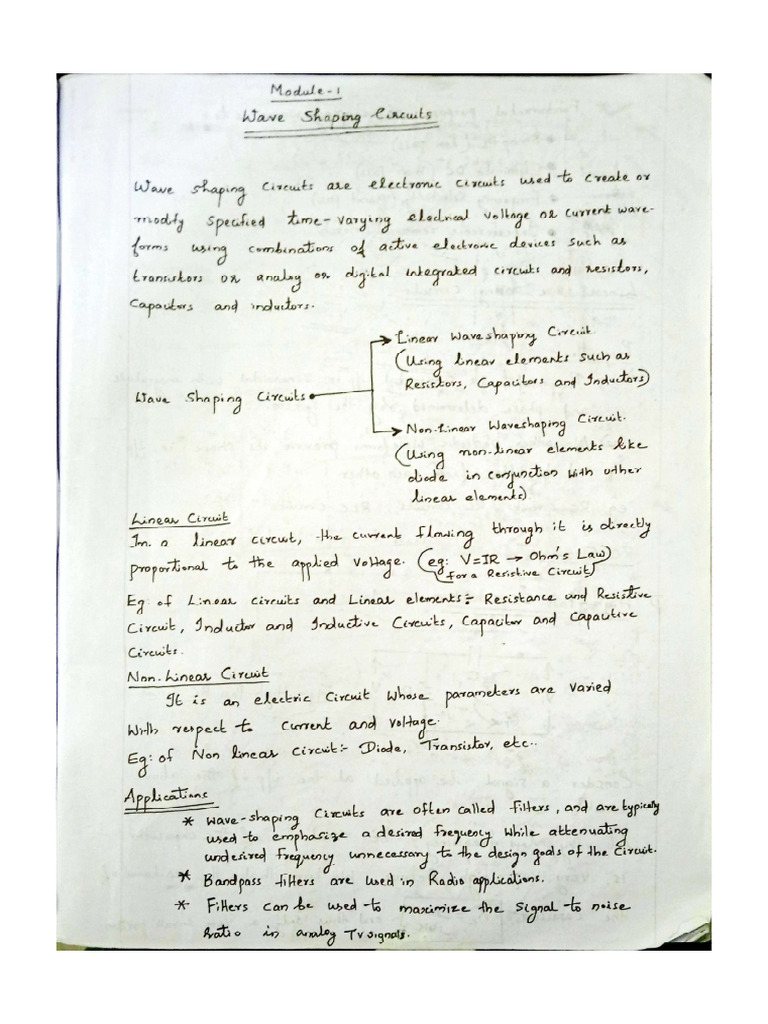 Module-1
Wave Shaping Circuits
Wave shaping circuits are electronic circuits used to create or
modify specified time-varying electrical voltage or current wave-
forms using combinations of active electronic devices such as
transistors or analog or digital integrated circuits and resistors,
Capacitors and inductors.
Linear Waveshaping Circuit
(Using linear elements such as
Resistors, Capacitors and Inductors)
Wave Shaping Circuits
Non-Linear Waveshaping Circuit.
(Using non-linear elements like
diode in conjunction with other
linear elements)
Linear Circuit
In a linear circuit, the current flowing through it is directly
proportional to the applied voltage. (eg: V=IR → Ohm's Law)
for a Resistive Circuit
Eg: of Linear circuits and Linear elements:- Resistance and Resistive
Circuit, Inductor and Inductive Circuits, Capacitor and Capacitive
Circuits.
Non-Linear Circuit
It is an electric Circuit whose parameters are varied
with respect to current and voltage.
Eg: of Non linear circuit:- Diode, Transistor, etc..
Applications
* Wave-shaping Circuits are often called filters, and are typically
used to emphasize a desired frequency while attenuating
undesired frequency unnecessary to the design goals of the Circuit.
* Bandpass filters are used in Radio applications.
* Filters can be used to maximize the signal to noise
Ratio in analog TV signals.